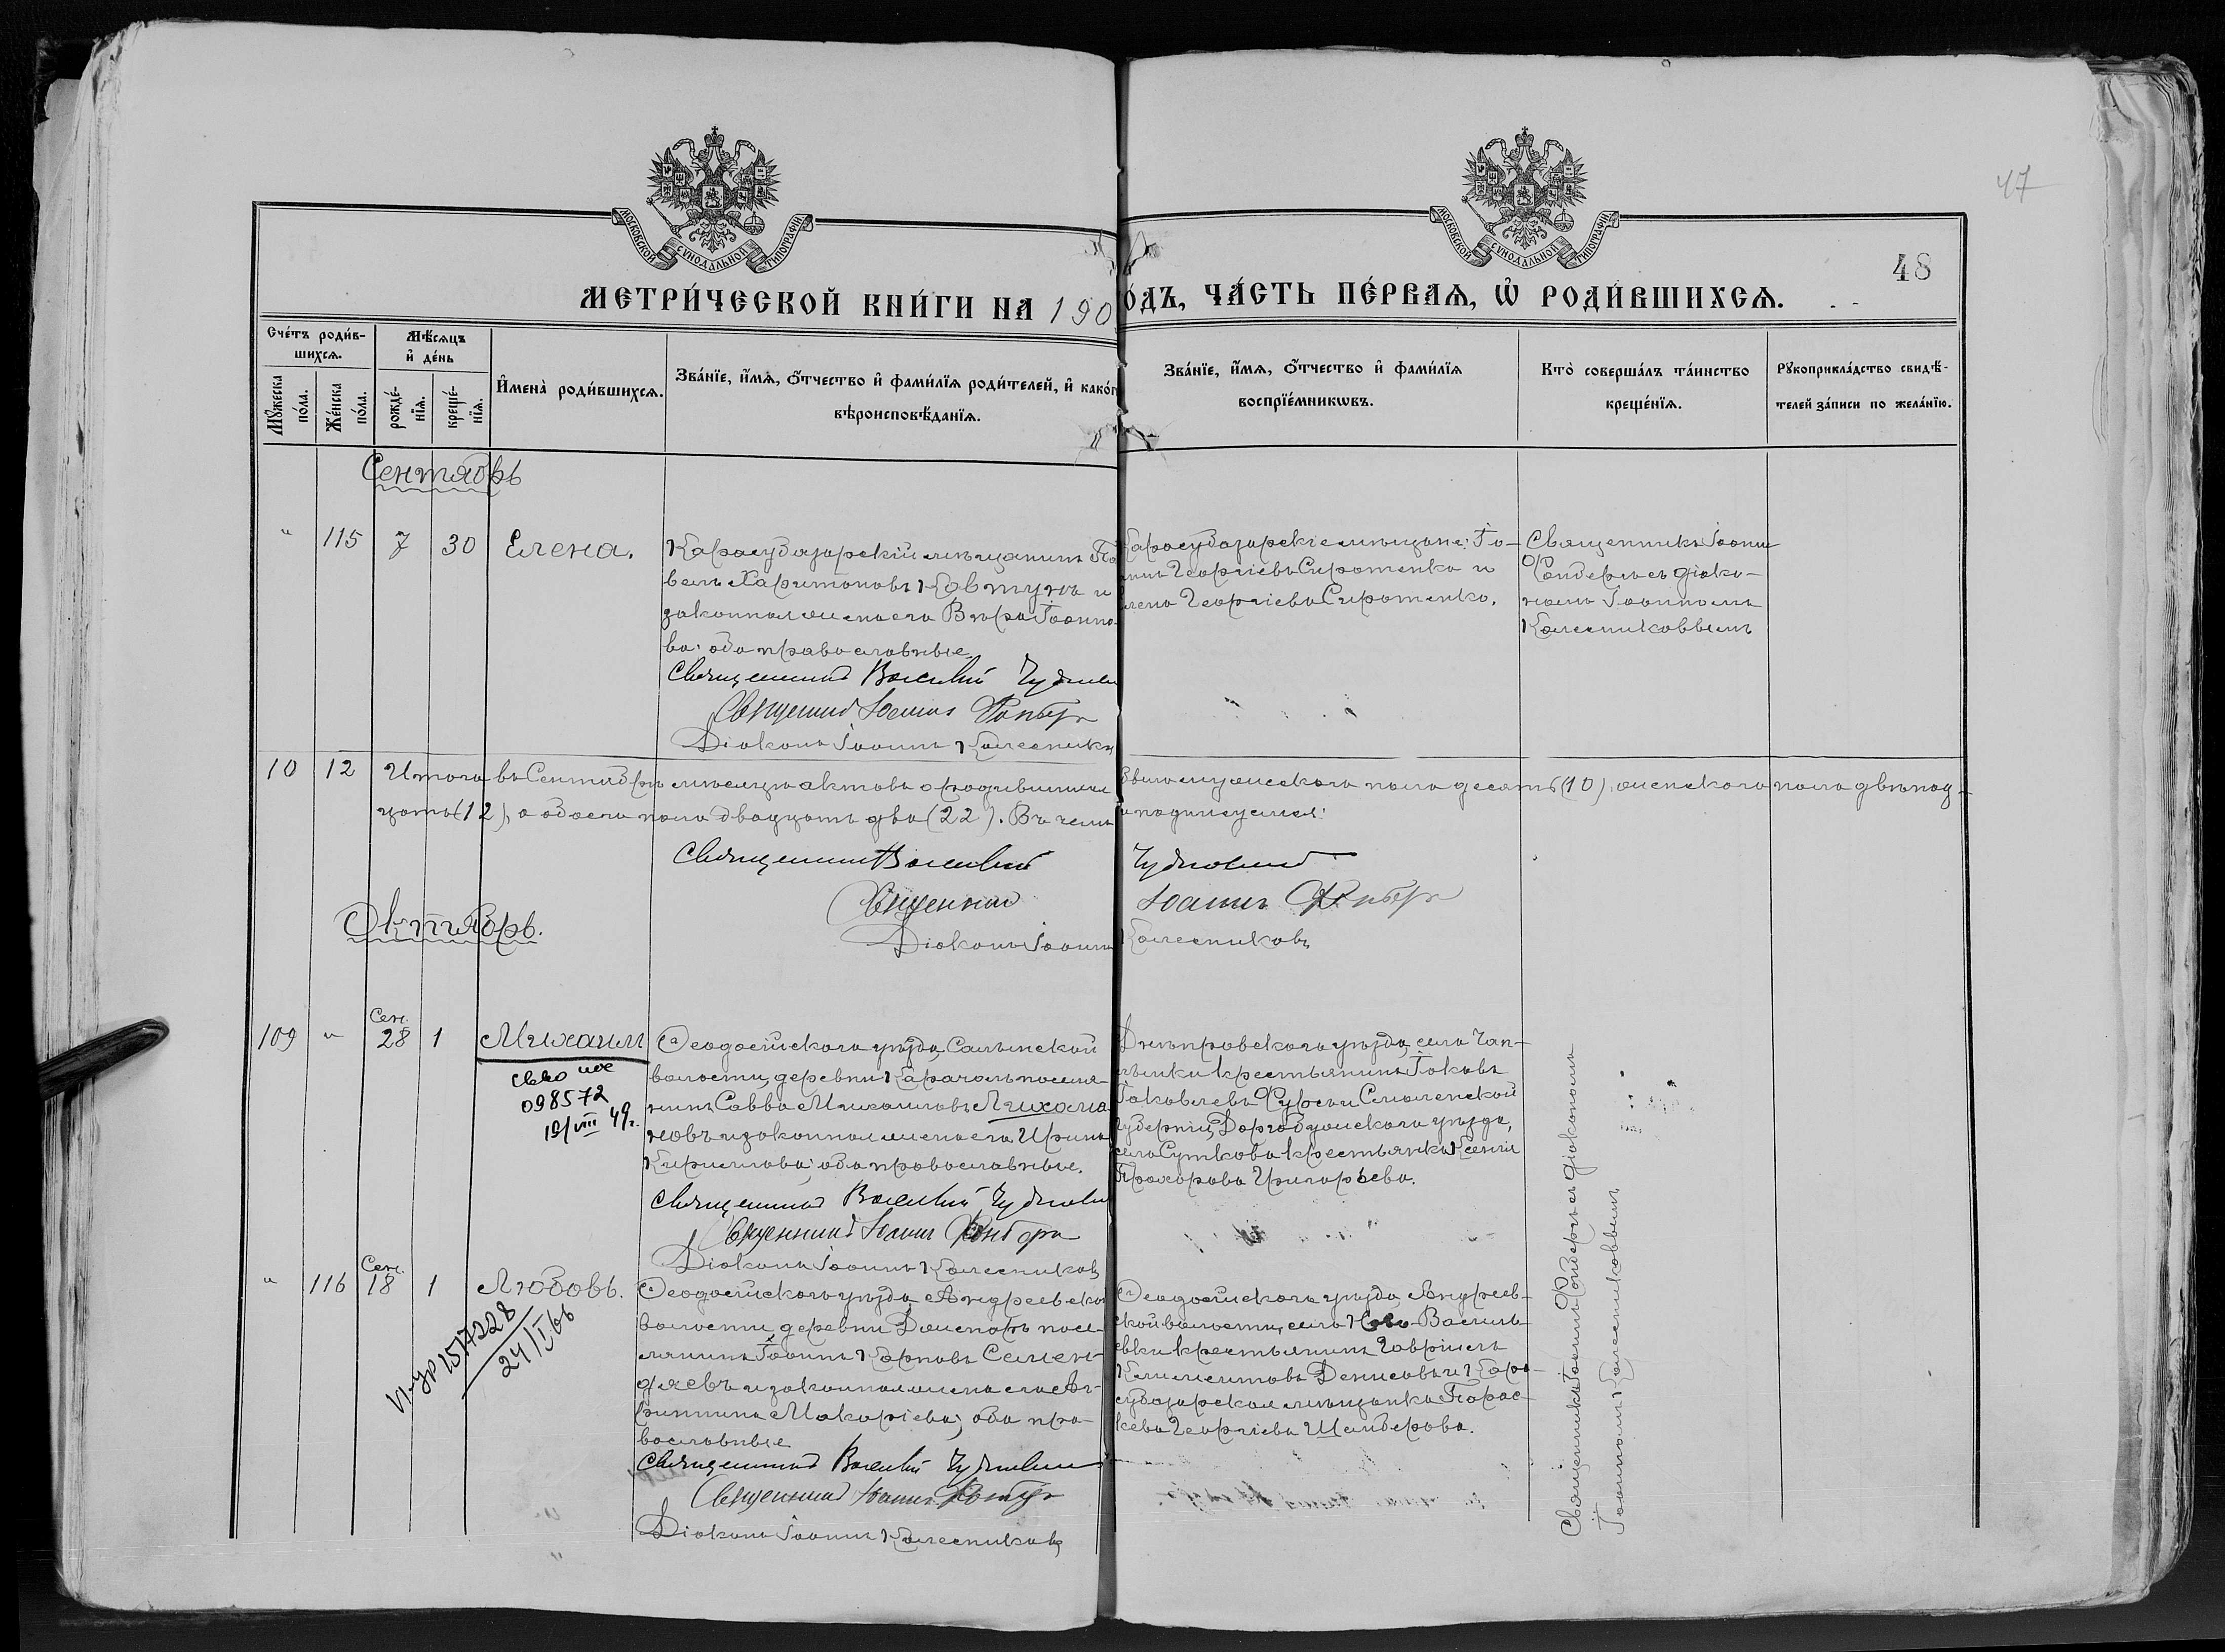 47
48
МОСКОВСКОЙ СУНОДАЛЬНОЙ ТИПОГРАФІИ
МОСКОВСКОЙ СУНОДАЛЬНОЙ ТИПОГРАФІИ
МЕТРИ́ЧЕСКОЙ КНИ́ГИ НА 190
О́ДЪ, ЧА́СТЬ ПЕ́РВАЯ, Ѽ РОДИ́ВШИХСЯ.
Сче́тъ роди́в-
шихся.
Мꙋ́жеска
по́ла.
Же́нска
по́ла.
Мѣ́сяцъ
и҆ де́нь
рожде́-
нїѧ.
креще́-
нїѧ.
И҆мена̀ роди́вшихся.
Зва́нїе, и҆́мѧ, ѻ҆́тчество и҆ фами́лїѧ роди́телей, и҆ како́г
вѣроисповѣ́данїѧ.
Зва́нїе, и҆́мѧ, ѻ҆́тчество и҆ фами́лїѧ
воспрїе́мникѡвъ.
Кто̀ соверша́лъ та́инство
креще́нїѧ.
Рꙋкоприкла́дство свидѣ́-
телей за́писи по жела́нїю.
Сентябрь
" 115 7 30 Елена.
Карасубазарскій мѣщанинъ Па
велъ Харитоновъ Ковтунъ и
законная жена его Вѣра Іоанно-
ва; оба православные
Священникъ Василій
Священникъ Іоаннъ
Діаконъ Іоаннъ Колесниковъ
Карасубазарскіе мѣщане: Іо-
аннъ Георгіевъ Сиротенко и
Елена Георгіева Сиротенко.
Священникъ Іоаннъ
съ діако-
номъ Іоанномъ
Колесниковымъ
10 12 Итого въ Сентябрѣ мѣсяцѣ актовъ о родившихся
было мужескаго пола десять (10), женскаго пола двѣнад-
цать (12), а обоего пола двадцать два (22). Въ чемъ
и подписуемся:
Священникъ Василій
Священникъ Іоаннъ
Діаконъ Іоаннъ Колесниковъ
Октябрь.
109 " Сен. 28 1 Михаилъ
098572
19/VIII 49г.
Ѳеодосійскаго уѣзда, Салынской
волости, деревни Карачоль поселя-
нинъ Савва Михаиловъ Лихома
новъ и законная жена его Ирина
Кириллова; оба православные.
Священникъ Василій
Священникъ Іоаннъ
Діаконъ Іоаннъ Колесниковъ
Днѣпровскаго уѣзда, села Чап-
лынки крестьянинъ Іаковъ
Іаковлевъ и Смоленской
губерніи, Дорогобужскаго уѣзда,
села Суткова крестьянка Ксенія
Прохорова Григорьева.
" 116 Сен. 18 1 Любовь.
1517228
24/I 66
Ѳеодосійскаго уѣзда, Андреевской
волости, деревни посе-
лянинъ Іоаннъ Карповъ Семен-
дяевъ и законная жена его Аг-
риппина Макаріева; оба пра-
вославные
Священникъ Василій
Священникъ Іоаннъ
Діаконъ Іоаннъ Колесниковъ
Ѳеодосійскаго уѣзда, Андреев-
ской волости, села Ново-Василь-
евки крестьянинъ Гавріилъ
Климентовъ Денисовъ и Кара-
субазарская мѣщанка Парас-
кева Георгіева
Священникъ Іоаннъ съ діакономъ
Іоанномъ Колесниковымъ